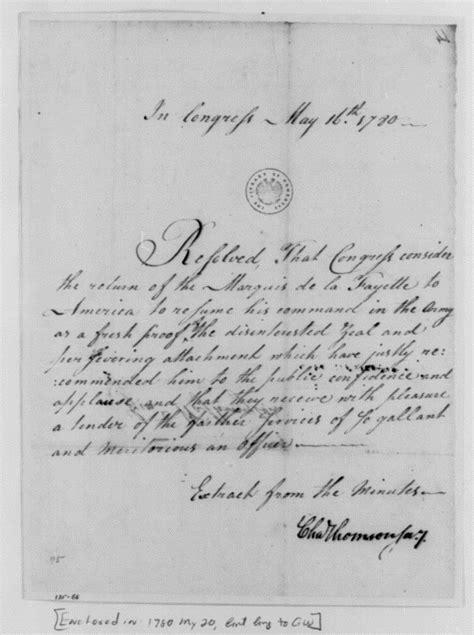 In Congress May 16th. 1780
THE LIBRARY OF CONGRESS
Resolved, That Congress consider
the return of the Marquis de la Fayette to
America to resume his command in the Army
as a fresh proof, the disinterested Zeal and
persevering attachment which have justly re:
:commended him to the public confidence and
applause and that they receive with pleasure
a tender of the farther Services of so gallant
and Meritorious an Officer
Extract from the Minutes
Cha Thomson Secy.
125-66
[Enclosed in: 1780 My 20, Cont Cong to GW]